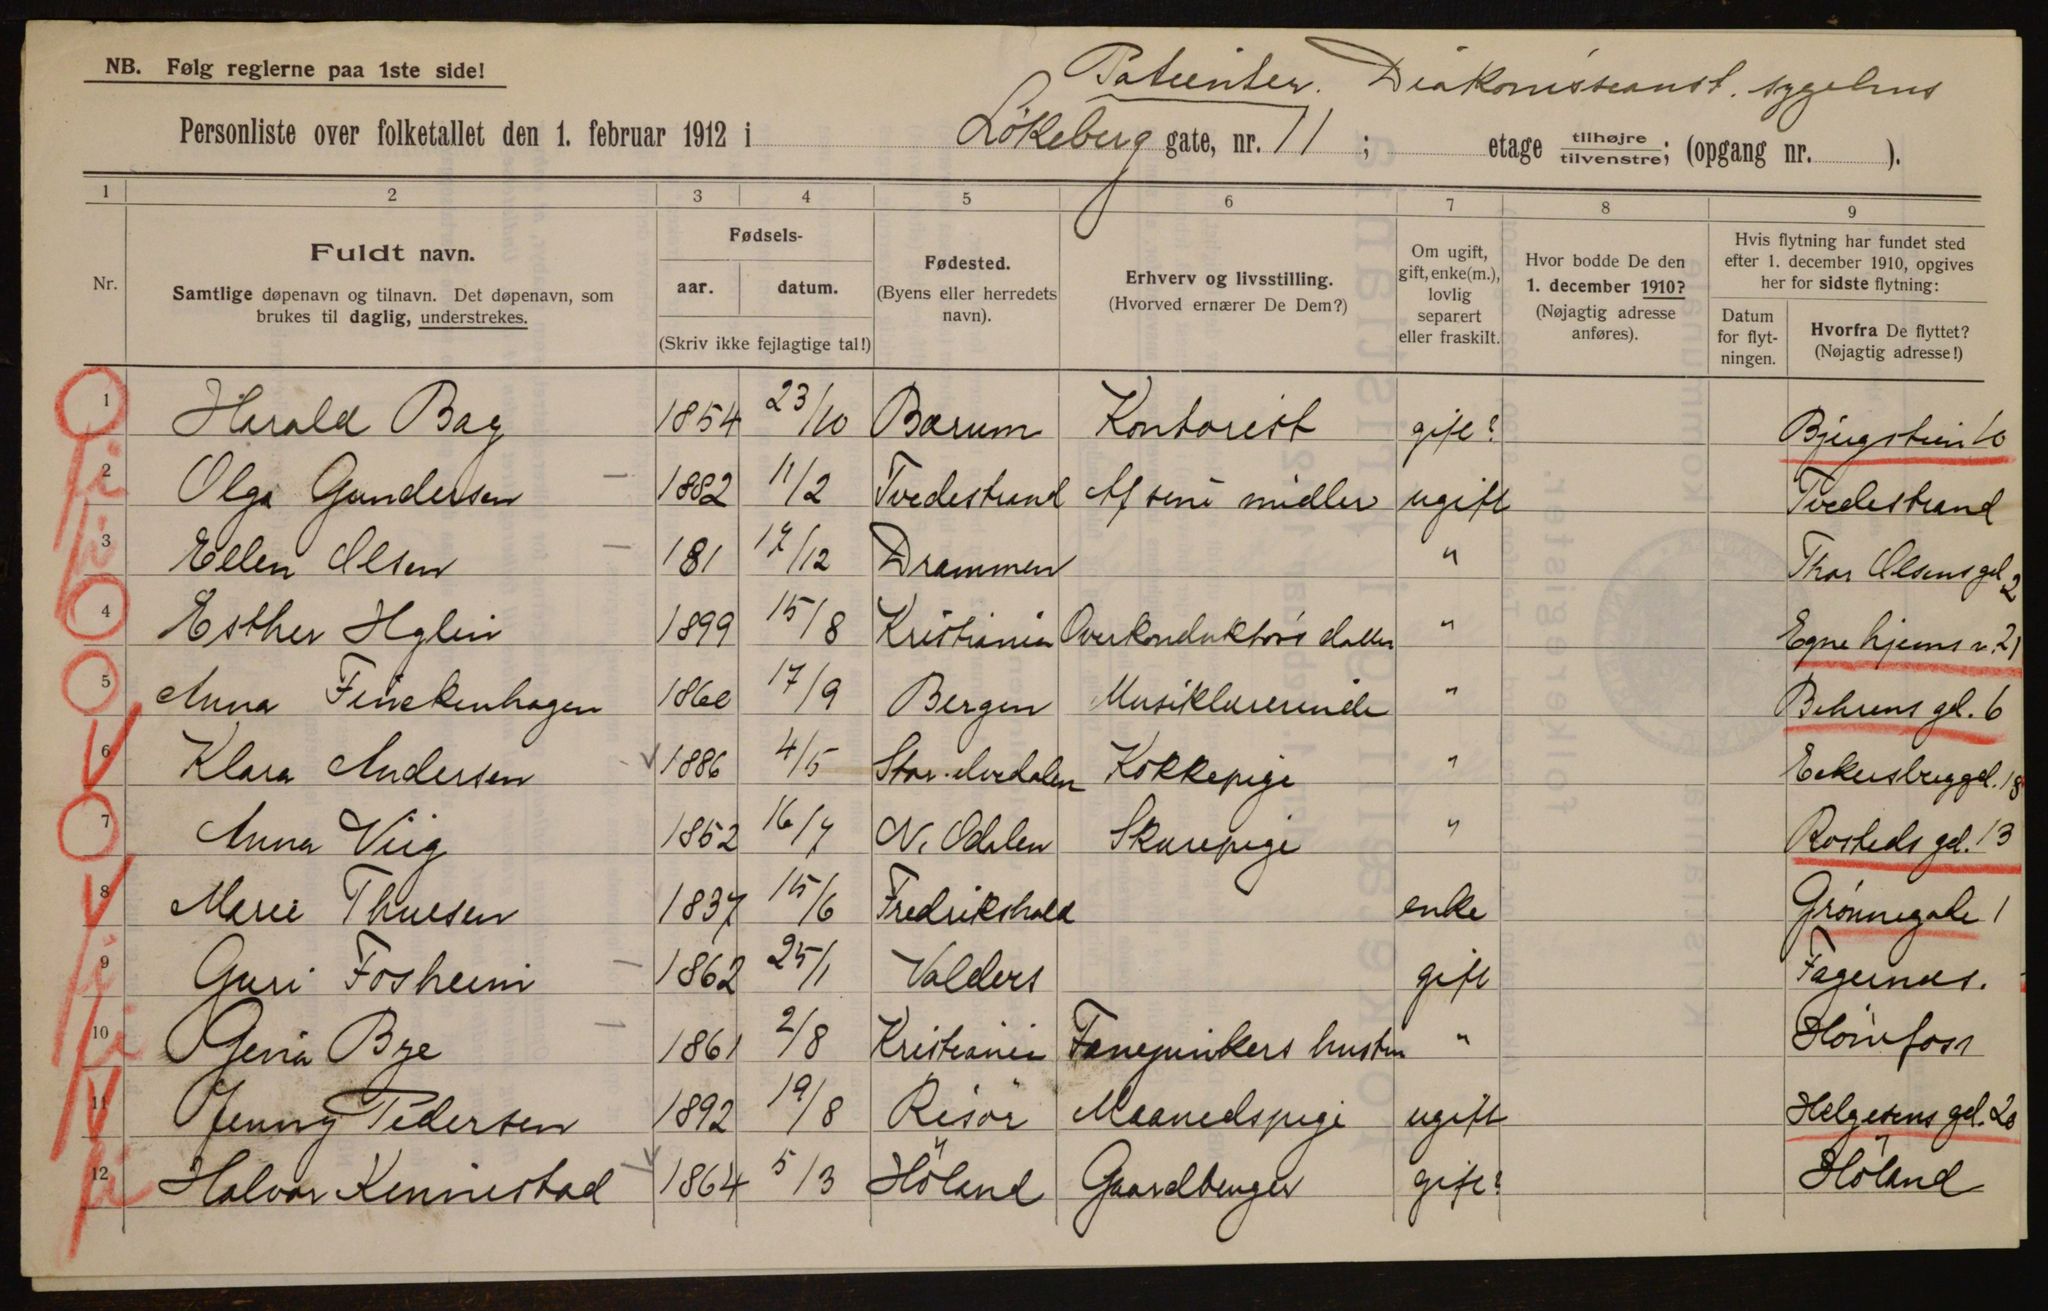 NB. Følg reglerne paa 1ste side!
Patienter. Diakonisseanst. sygehus
Personliste over folketallet den 1. februar 1912 i Lökeberg gate, nr. 11; etage tilhøjre/tilvenstre; (opgang nr. ).
1 2 3 4 5 6 7 8 9
Nr.
Fuldt navn.
Samtlige døpenavn og tilnavn. Det døpenavn, som
brukes til daglig, understrekes.
Fødsels-
aar. datum.
(Skriv ikke fejlagtige tal!)
Fødested.
(Byens eller herredets
navn).
Erhverv og livsstilling.
(Hvorved ernærer De Dem?)
Om ugift,
gift, enke(m.),
lovlig
separert
eller fraskilt.
Hvor bodde De den
1. december 1910?
(Nøjagtig adresse
anføres).
Hvis flytning har fundet sted
efter 1. december 1910, opgives
her for sidste flytning:
Datum
for flyt-
ningen.
Hvorfra De flyttet?
(Nøjagtig adresse!)
1 Harald Bay 1854 23/10 Bærum Kontorist gift? Bjergstien 10
2 Olga Gundersen 1882 11/2 Tvedestrand Af sine midler ugift Tvedestrand
3 Ellen Olsen 181 17/12 Drammen " Thor Olsens gd 2
4 Esther Hglin 1899 15/8 Kristiania Overkonduktörs datter " Egne hjems v. 21
5 Anna Finckenhagen 1860 17/9 Bergen Musiklærerinde " Behrens gd. 6
6 Klara Andersen 1886 4/5 Stor-elvedalen Kokkepige " Eckersberggd. 18
7 Anna Viig 1852 16/7 N. Odalen Skurepige " Rosteds gd. 13
8 Marie Thuesen 1837 15/6 Fredrikshald enke Grønnegade 1
9 Guri Fosheim 1862 25/1 Valders gift Fagernæs.
10 Gina Bye 1861 2/8 Kristiania hustru " Hönefoss
11 Jenny Pedersen 1892 19/8 Risör Maanedspige ugift Helgesens gd. 20
12 Halvor Kinnestad 1864 5/3 Höland Gaardbruger gift? Höland